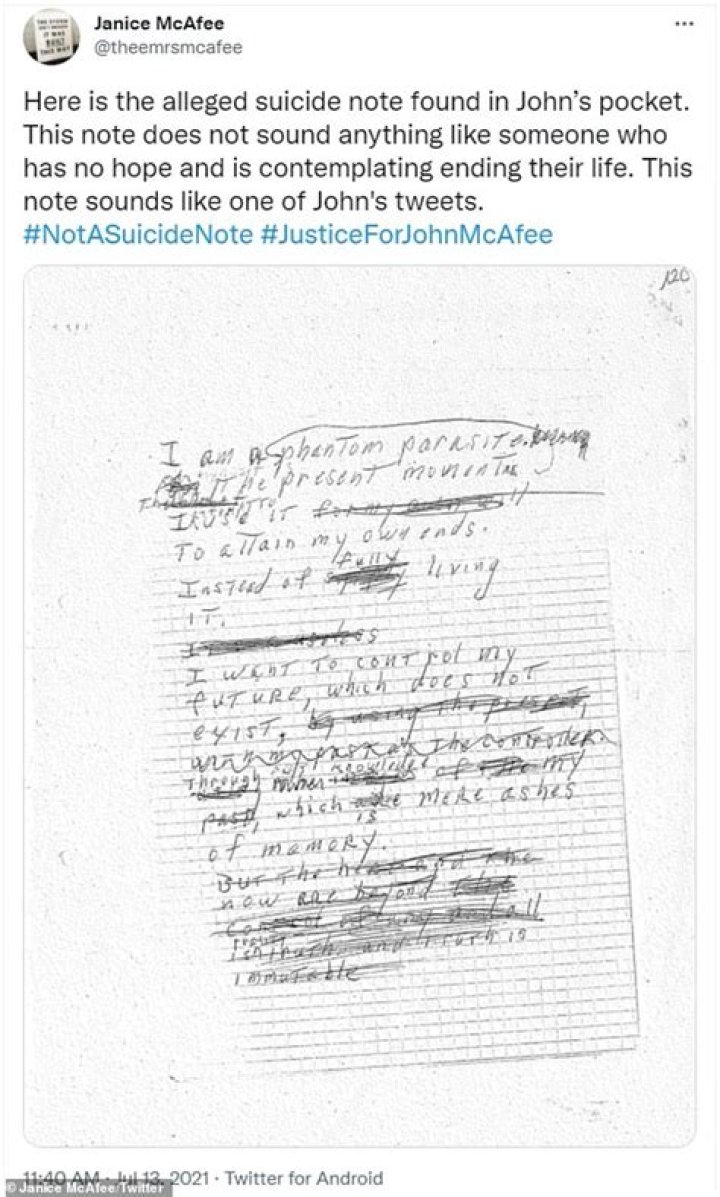 Janice McAfee
@theemrsmcafee
Here is the alleged suicide note found in John's pocket.
This note does not sound anything like someone who
has no hope and is contemplating ending their life. This
note sounds like one of John's tweets.
#NotASuicideNote #JusticeForJohnMcAfee
120
I am a phantom parasite.
the present moment
it
To attain my own ends.
Instead of fully living
IT.
I want to control my
future, which does not
exist, by using the present,
the controller
Through knowledge of my
past, which is mere ashes
of mamory.
But the and the
now are beyond the
of any and all
truth and is
immutable
11:40 AM · Jul 13, 2021 · Twitter for Android
© Janice McAfee/Twitter